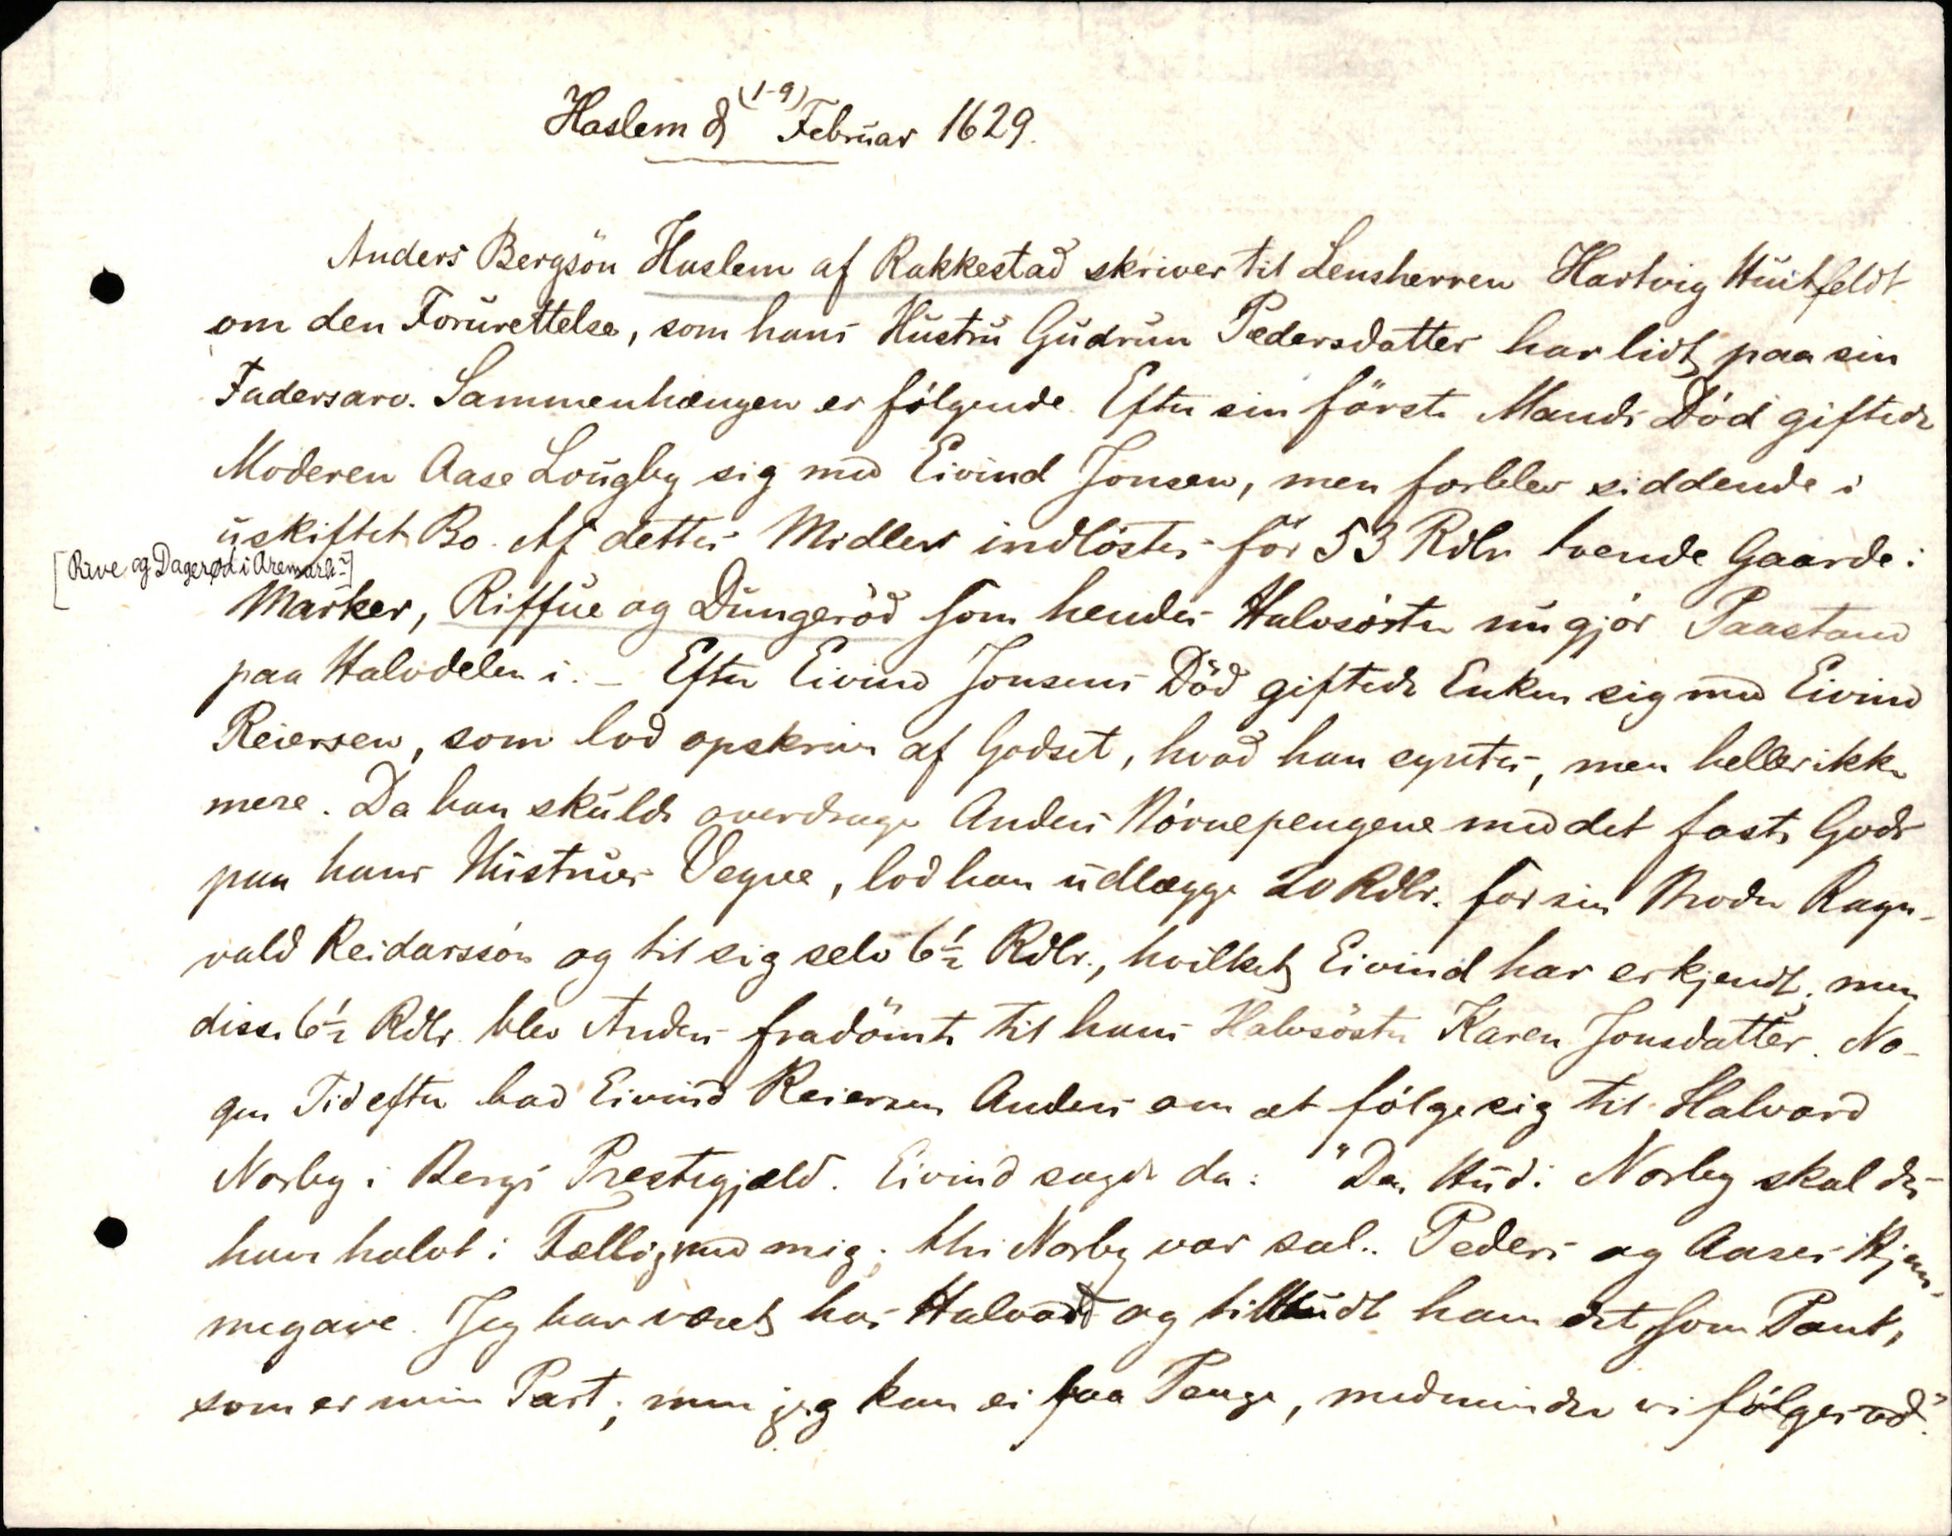 (1-9)
Haslem d Februar 1629.
Anders Bergsön Haslem af Rakkestad skriver til Lensherren Hartvig Huitfeldt
om den Forurettelse, som hans Hustru Gudrun Pedersdatter har lidt paa sin
Fadersarv. Sammenhængen er følgende. Efter sin förste Mands Död giftede
Moderen Aase Lougby sig med Eivind Jonsen, men forblev siddende i
uskiftet Bo. Af dettes Midler indlöstes för 53 Rdlr tvende Gaarde i
[Rive og Dagerød i Aremark]
Marker, Riffue og Dungeröd som hendes Halvsöster nu gjör Paastand
paa Halvdelen i. – Efter Eivind Jonsens Död giftede Enken sig med Eivind
Reiersen, som lod opskrive af Godset, hvad han syntes, men heller ikke
mere. Da han skulde overdrage Anders Börnepengene med det faste Gods
paa hans Hustrues Vegne, lod han udlægge 20 Rdlr. for sin Broder Ragn-
vald Reidarssön og til sig selv 6½ Rdlr., hvilket Eivind har erkjendt; men
disse 6½ Rdlr. blev Anders fradömte til hans Halvsöster Karen Jonsdatter. No-
gen Tid efter bad Eivind Reiersen Anders om at fölge sig til Halvard
Norby i Bergs Prestegjæld. Eivind sagde da: "Den Hud i Norby skal du
have halvt i Fællig med mig; thi Norby var sal. Peders og Aases Hjem-
megave. Jeg har været hos Halvard og tilbudt ham det som Pant,
som er min Part; men jeg kan ei faa Penge, medminder vi fölges ad."